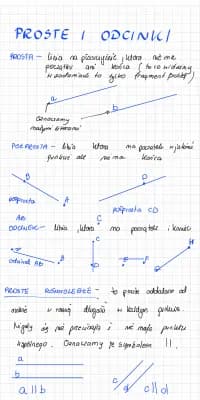 PROSTE I ODCINKI
PROSTA - linia na płaszczyźnie, która nie ma
początku ani końca (to co widzimy
w zadaniach to tylko fragment prostej)
a
b
Oznaczamy
małymi literami
PÓŁPROSTA - linia która ma początek w jakimś
punkcie ale nie ma końca
B
A
D
C
półprosta
AB
półprosta CD
ODCINEK - linia, która ma początek i koniec
A
B
odcinek AB
C
D
E
F
G
H
PROSTE RÓWNOLEGŁE - to proste oddalone od
siebie w równej długości w każdym punkcie.
Nigdy się nie przecinają i nie mają punktu
wspólnego. Oznaczamy je symbolem ||.
a
b
a || b
c
d
c || d